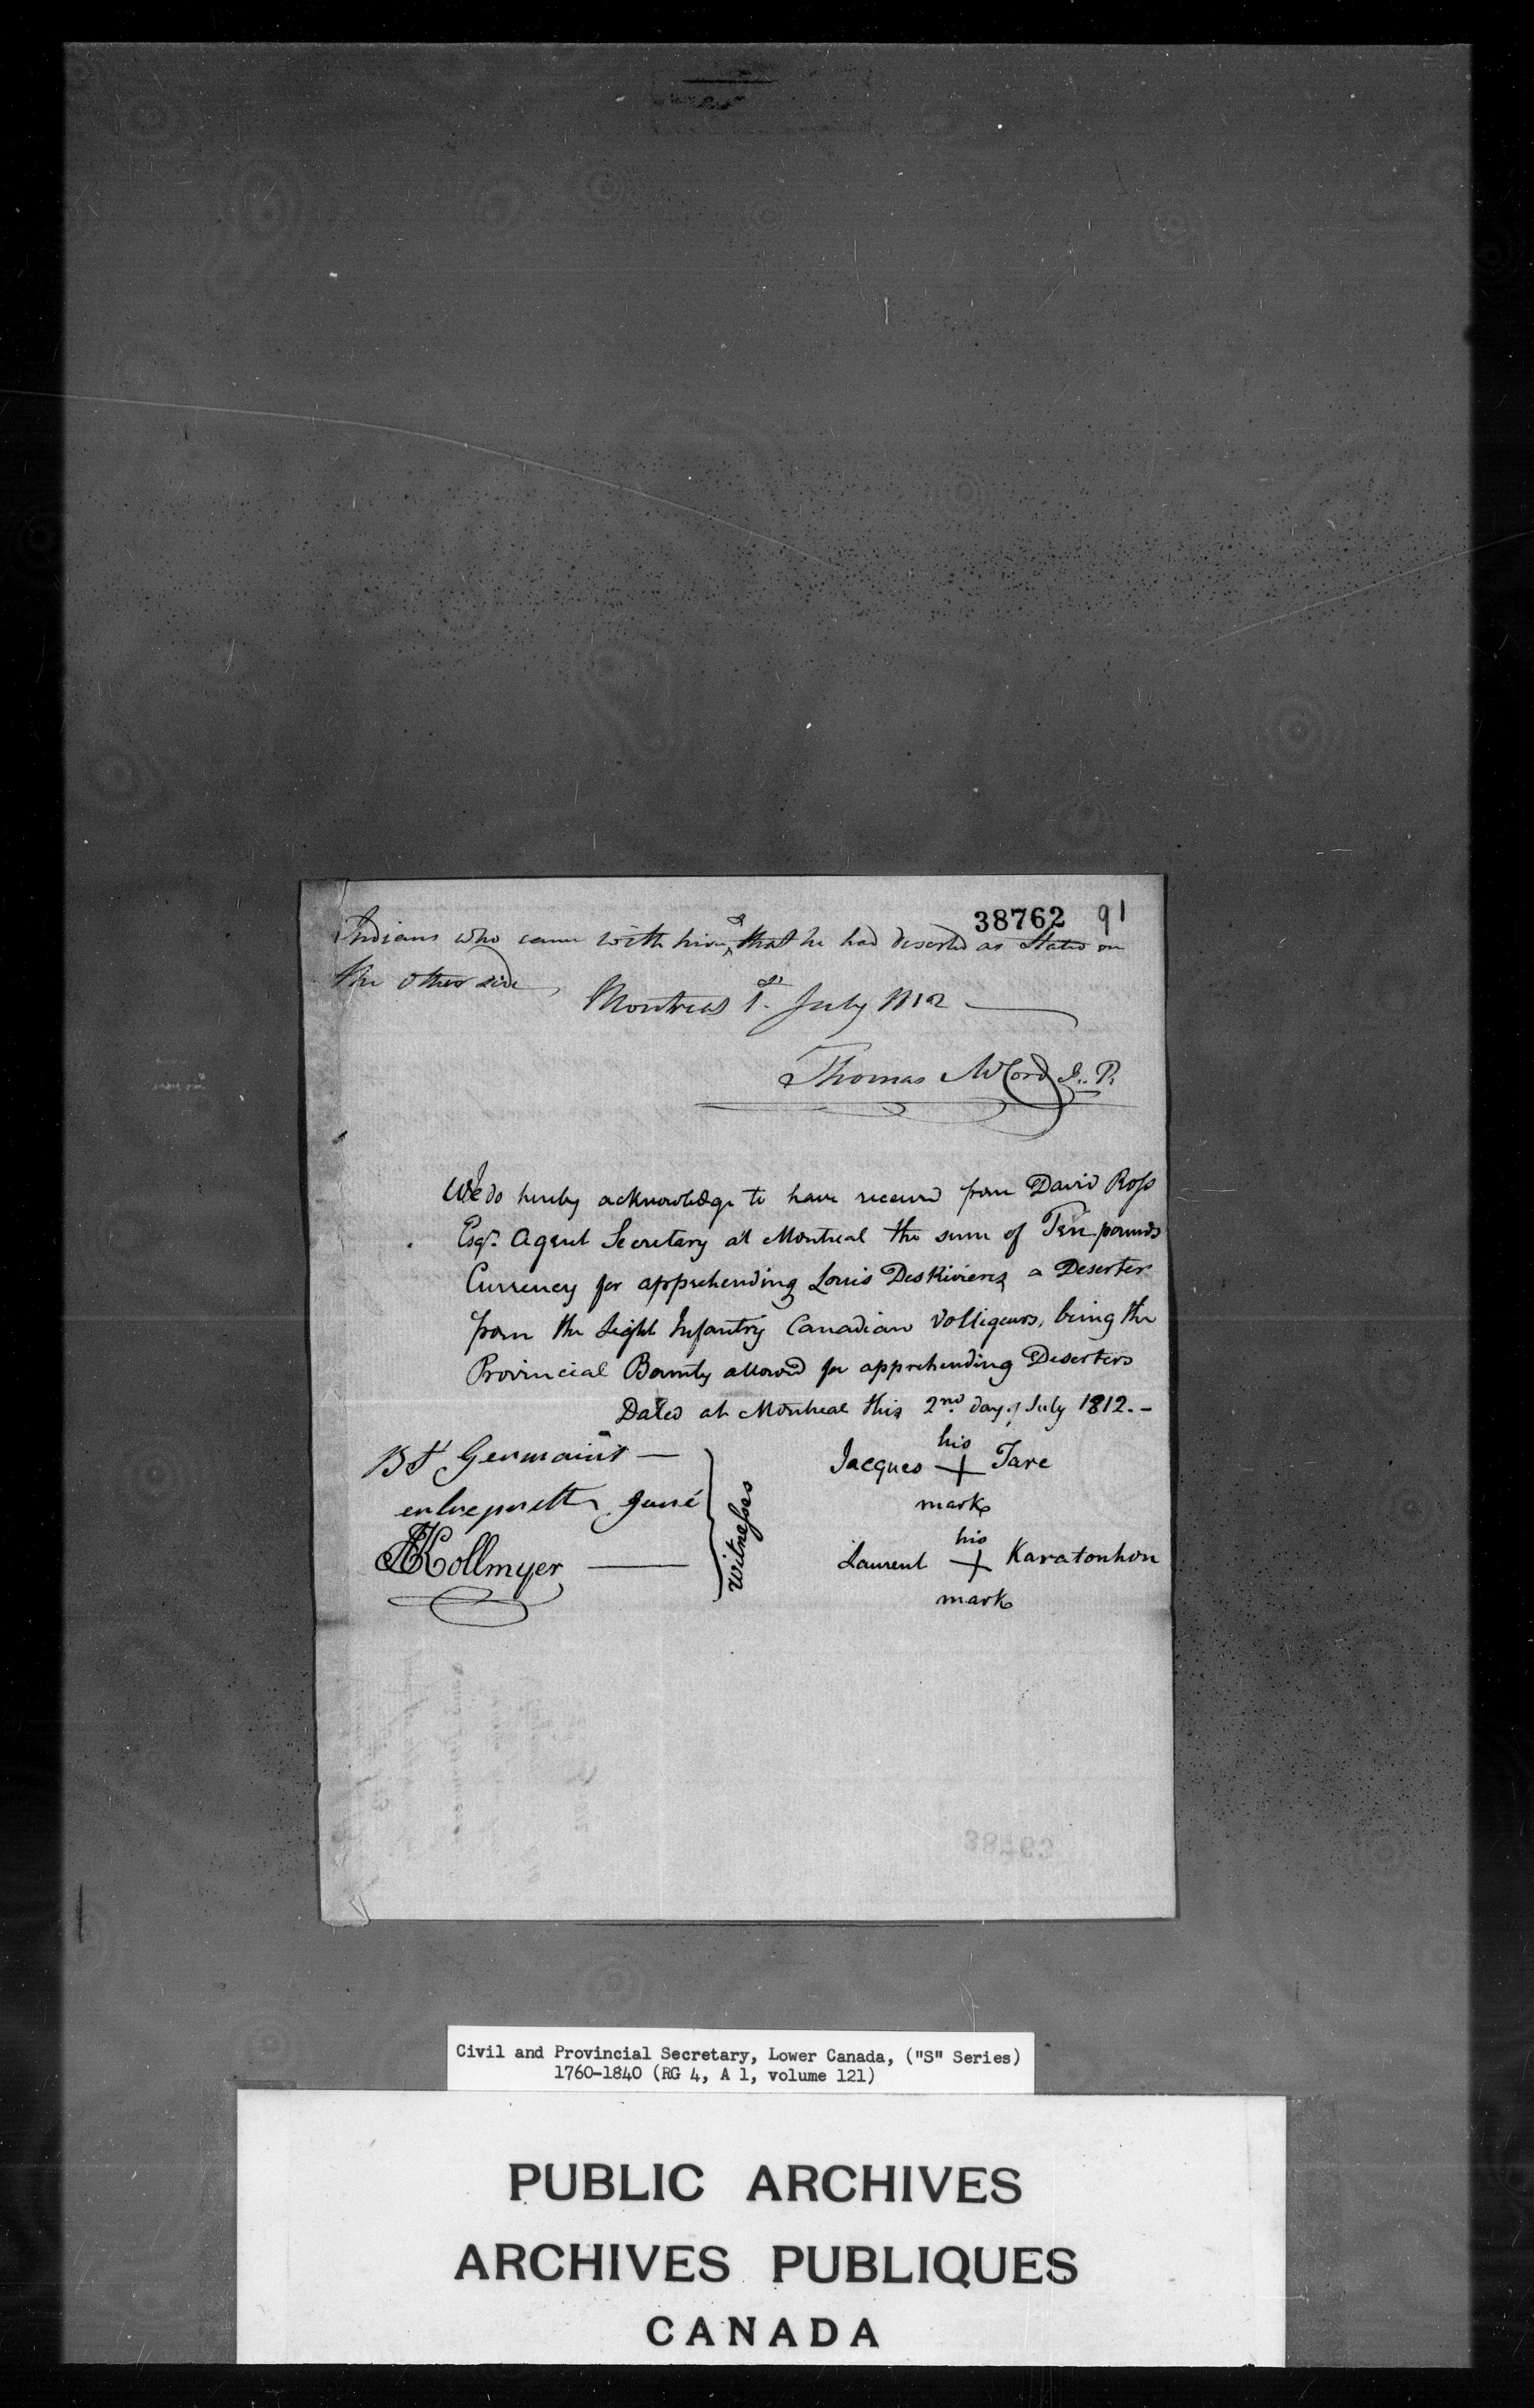 38762 91
Indians who came with him, & that he had deserted as Stated on
the other side,
Montreal 1st July 1812
Thomas McCord J. P.
We do hereby acknowledge to have received from David Ross
Esqr. Agent Secretary at Montreal the sum of Ten pounds
Currency for apprehending Louis DesRivieres a Deserter
from the Light Infantry Canadian Voltigeurs, being the
Provincial Bounty allowed for apprehending Deserters
Dated at Montreal this 2nd day of July 1812.-
Bt St Germain
Juré
Kollmyer
Witnesses
his
Jacques + Tare
mark
his
Laurent + Karatonhon
mark
38763
Civil and Provincial Secretary, Lower Canada, ("S" Series)
1760-1840 (RG 4, A 1, volume 121)
PUBLIC ARCHIVES
ARCHIVES PUBLIQUES
CANADA